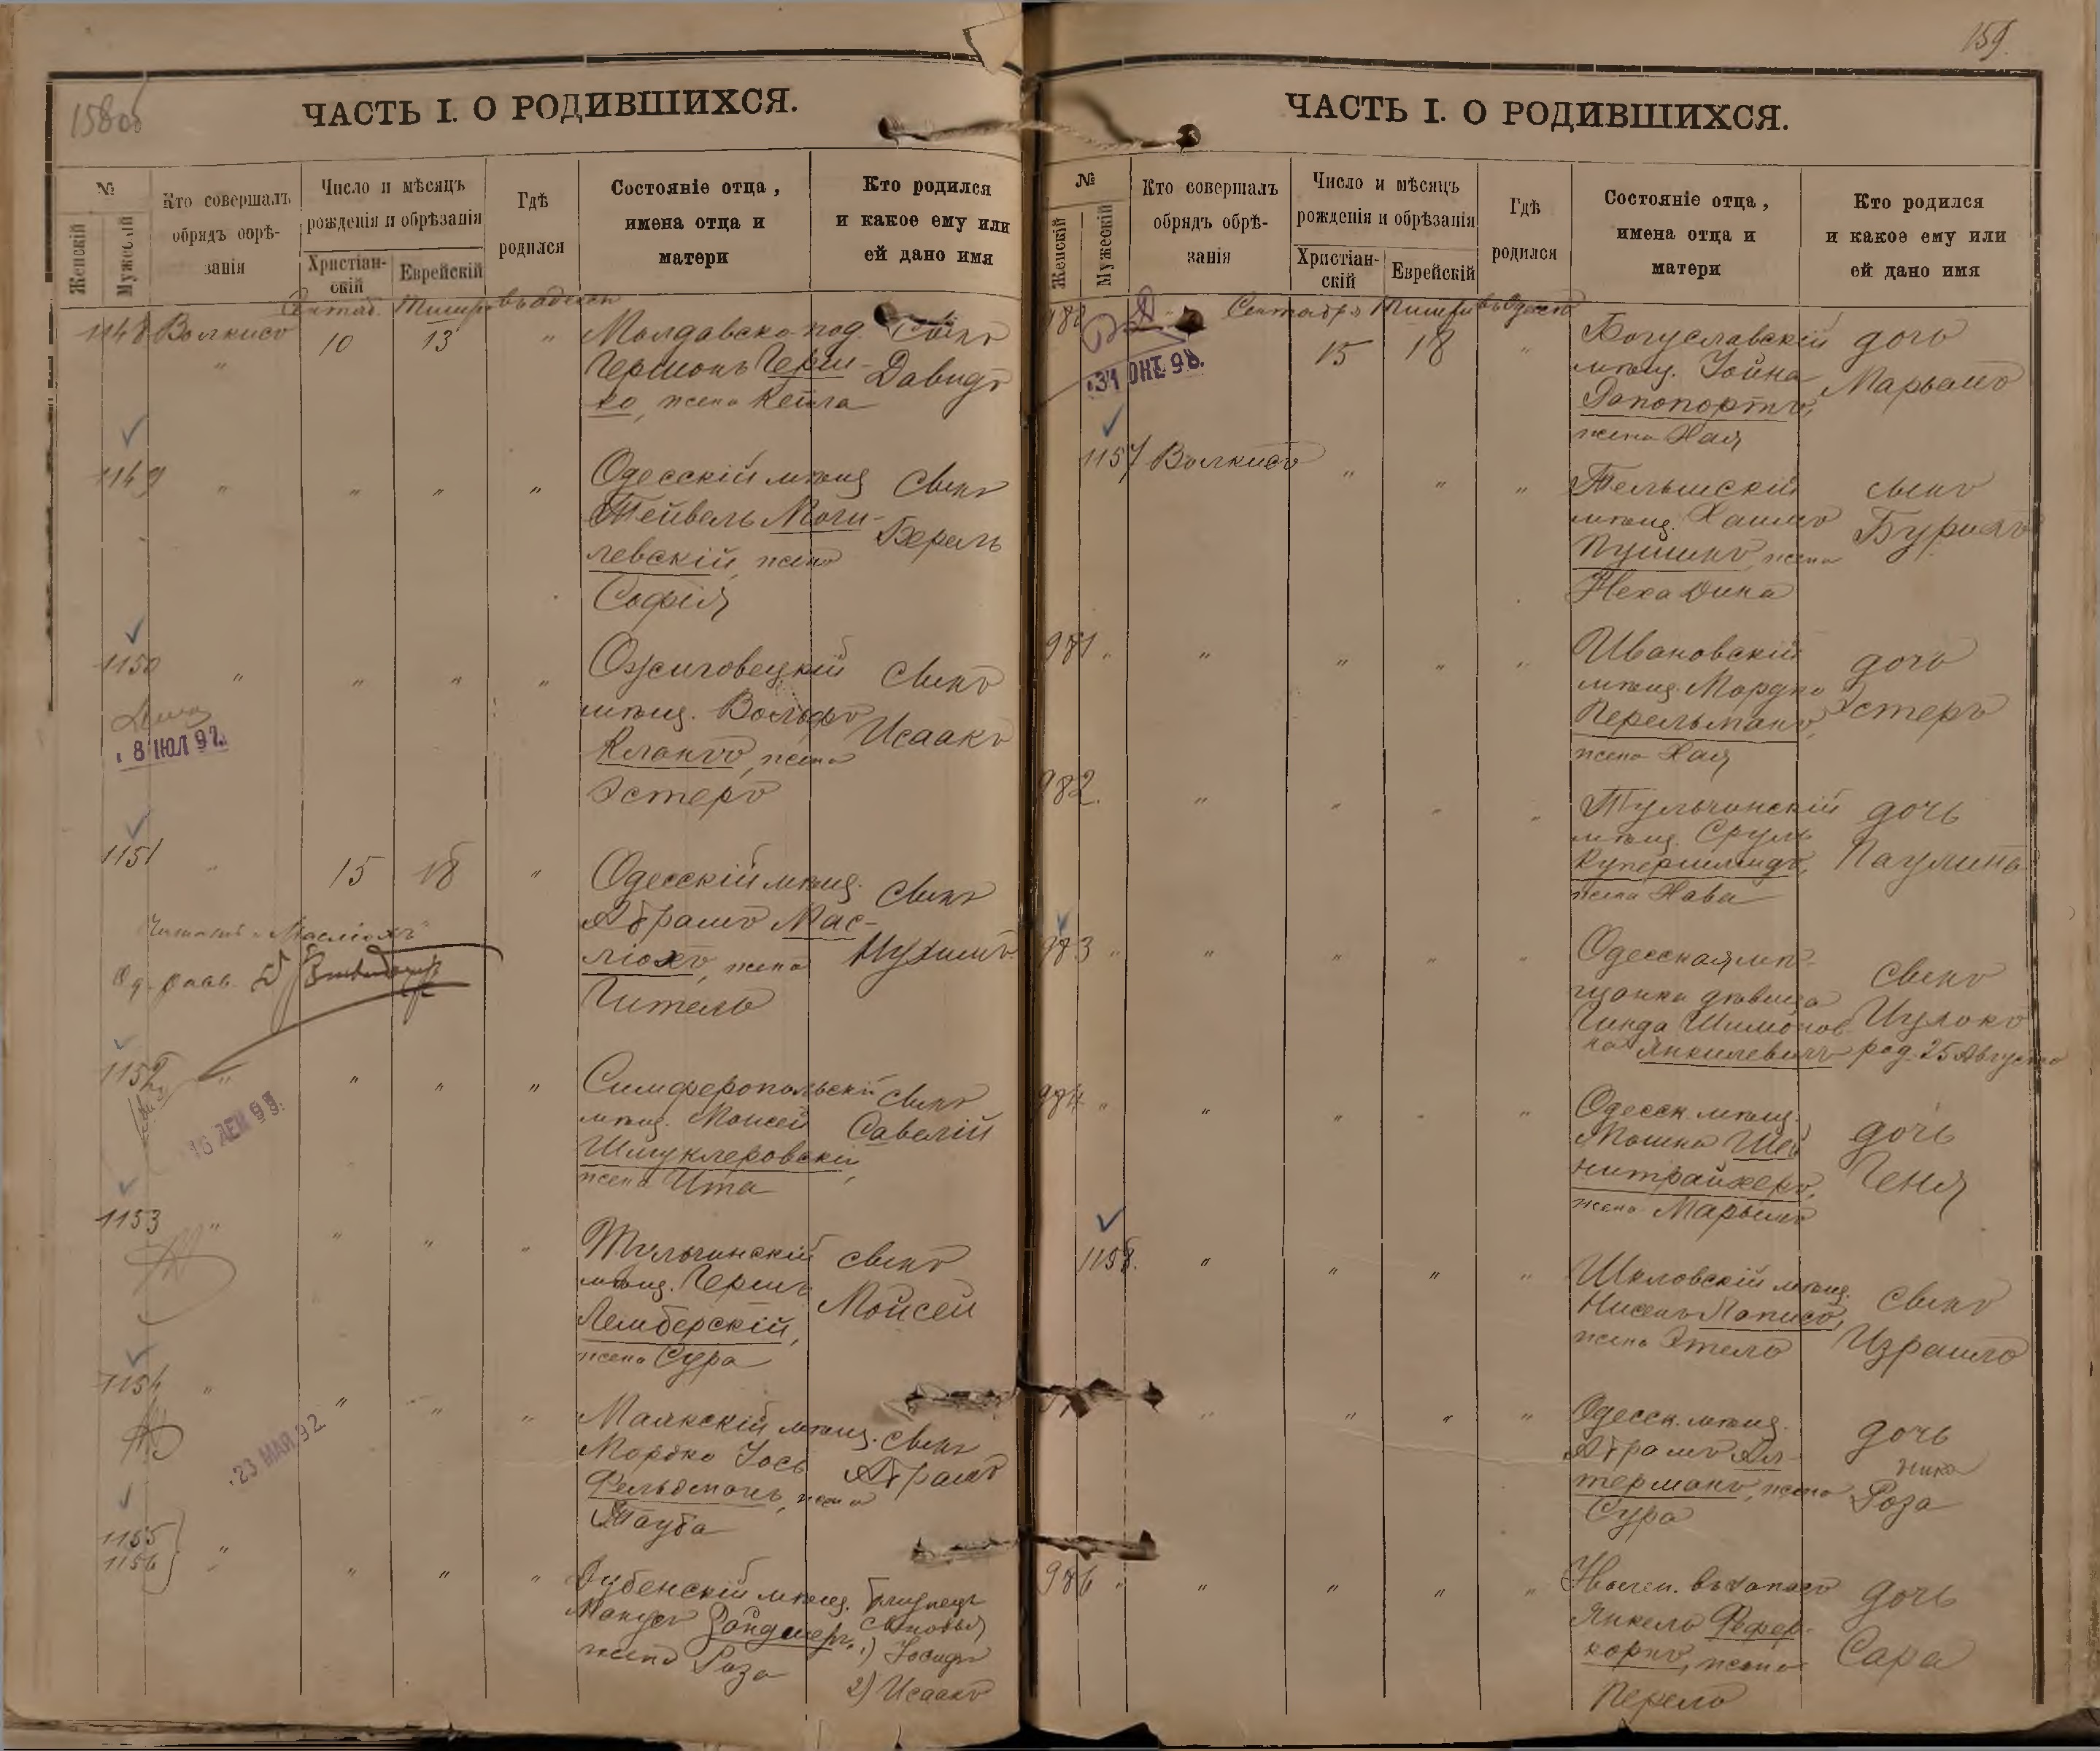 158об
ЧАСТЬ I. О РОДИВШИХСЯ.
№
Женскій
Мужескій
Кто совершалъ
обрядъ обрѣ-
занія
Число и мѣсяцъ
рожденія и обрѣзанія
Христіан-
скій
Еврейскій
Гдѣ
родился
Состояніе отца,
имена отца и
матери
Кто родился
и какое ему или
ей дано имя
Сентяб. Тишри въ Одессѣ
1148 Волкисъ 10 13 " Молдавско-под. Сынъ
Гершонъ Герш-
ко, жена Кейла Давидъ
1149 " " " " Одесскій мѣщ. Сынъ
Тейвель Моги-
левскій, жена Берель
Софія
1150 " " " " Ожиговецкій Сынъ
мѣщ. Вольфъ Исаакъ
жена
Эстеръ
8 ІЮЛ 97
1151 " 15 18 " Одесскій мѣщ. Сынъ
Абрамъ Мас-
ліохъ, жена Нухимъ
Гитель
Читать "Масліохъ"
Од. равв.
1152 " " " " Симферопольскій Сынъ
мѣщ. Моисей Савелій
Шмуклеровскій,
жена Ита
1153 " " " " Тульчинскій сынъ
мѣщ. Гершъ Мойсей
Лемберскій,
жена Сура
1154 " " " " Маякскій мѣщ. Сынъ
Мордко Іось Абрамъ
Фельдманъ, жена
Тауба
23 МАЯ 92
1155
1156 " " " " Дубенскій мѣщ. Близнецы
сыновья
1) Іосифъ
жена Роза
2) Исаакъ
159.
ЧАСТЬ I. О РОДИВШИХСЯ.
№
Женскій
Мужескій
Кто совершалъ
обрядъ обрѣ-
занія
Число и мѣсяцъ
рожденія и обрѣзанія
Христіан-
скій
Еврейскій
Гдѣ
родился
Состояніе отца,
имена отца и
матери
Кто родился
и какое ему или
ей дано имя
Сентябрь Тишри въ Одессѣ
15 18 " Богуславскій дочь
мѣщ. Іойна Марьямъ
Рапопортъ,
жена Хая
31 ОКТ. 98.
1157 Волкисъ " " " Тельшскій сынъ
мѣщ. Хаимъ
жена
Неха Дина
981 " " " " " Ивановскій дочь
мѣщ. Мордко Эстеръ
Перельманъ,
жена Хая
982. " " " " Тульчинскій дочь
мѣщ. Сруль
Купершмидъ, Паулина
жена Хава
983 " " " " " Одесская мѣ-
щанка дѣвица сынъ
Гинда Шимонов-
на Янкилевичъ род. 25 Августа
984. " " " " " Одесск. мѣщ.
Мошка дочь
Геня
жена Марьямъ
1158. " " " " Шкловскій мѣщ. Сынъ
Нисенъ Лаписъ,
жена Этель Израиль
" " " " Одесск. мѣщ. дочь
Абрамъ Ал-
терманъ, жена Роза
Сура
986 " " " " " дочь
Янкель Фефер-
корнъ, жена Сара
Перель